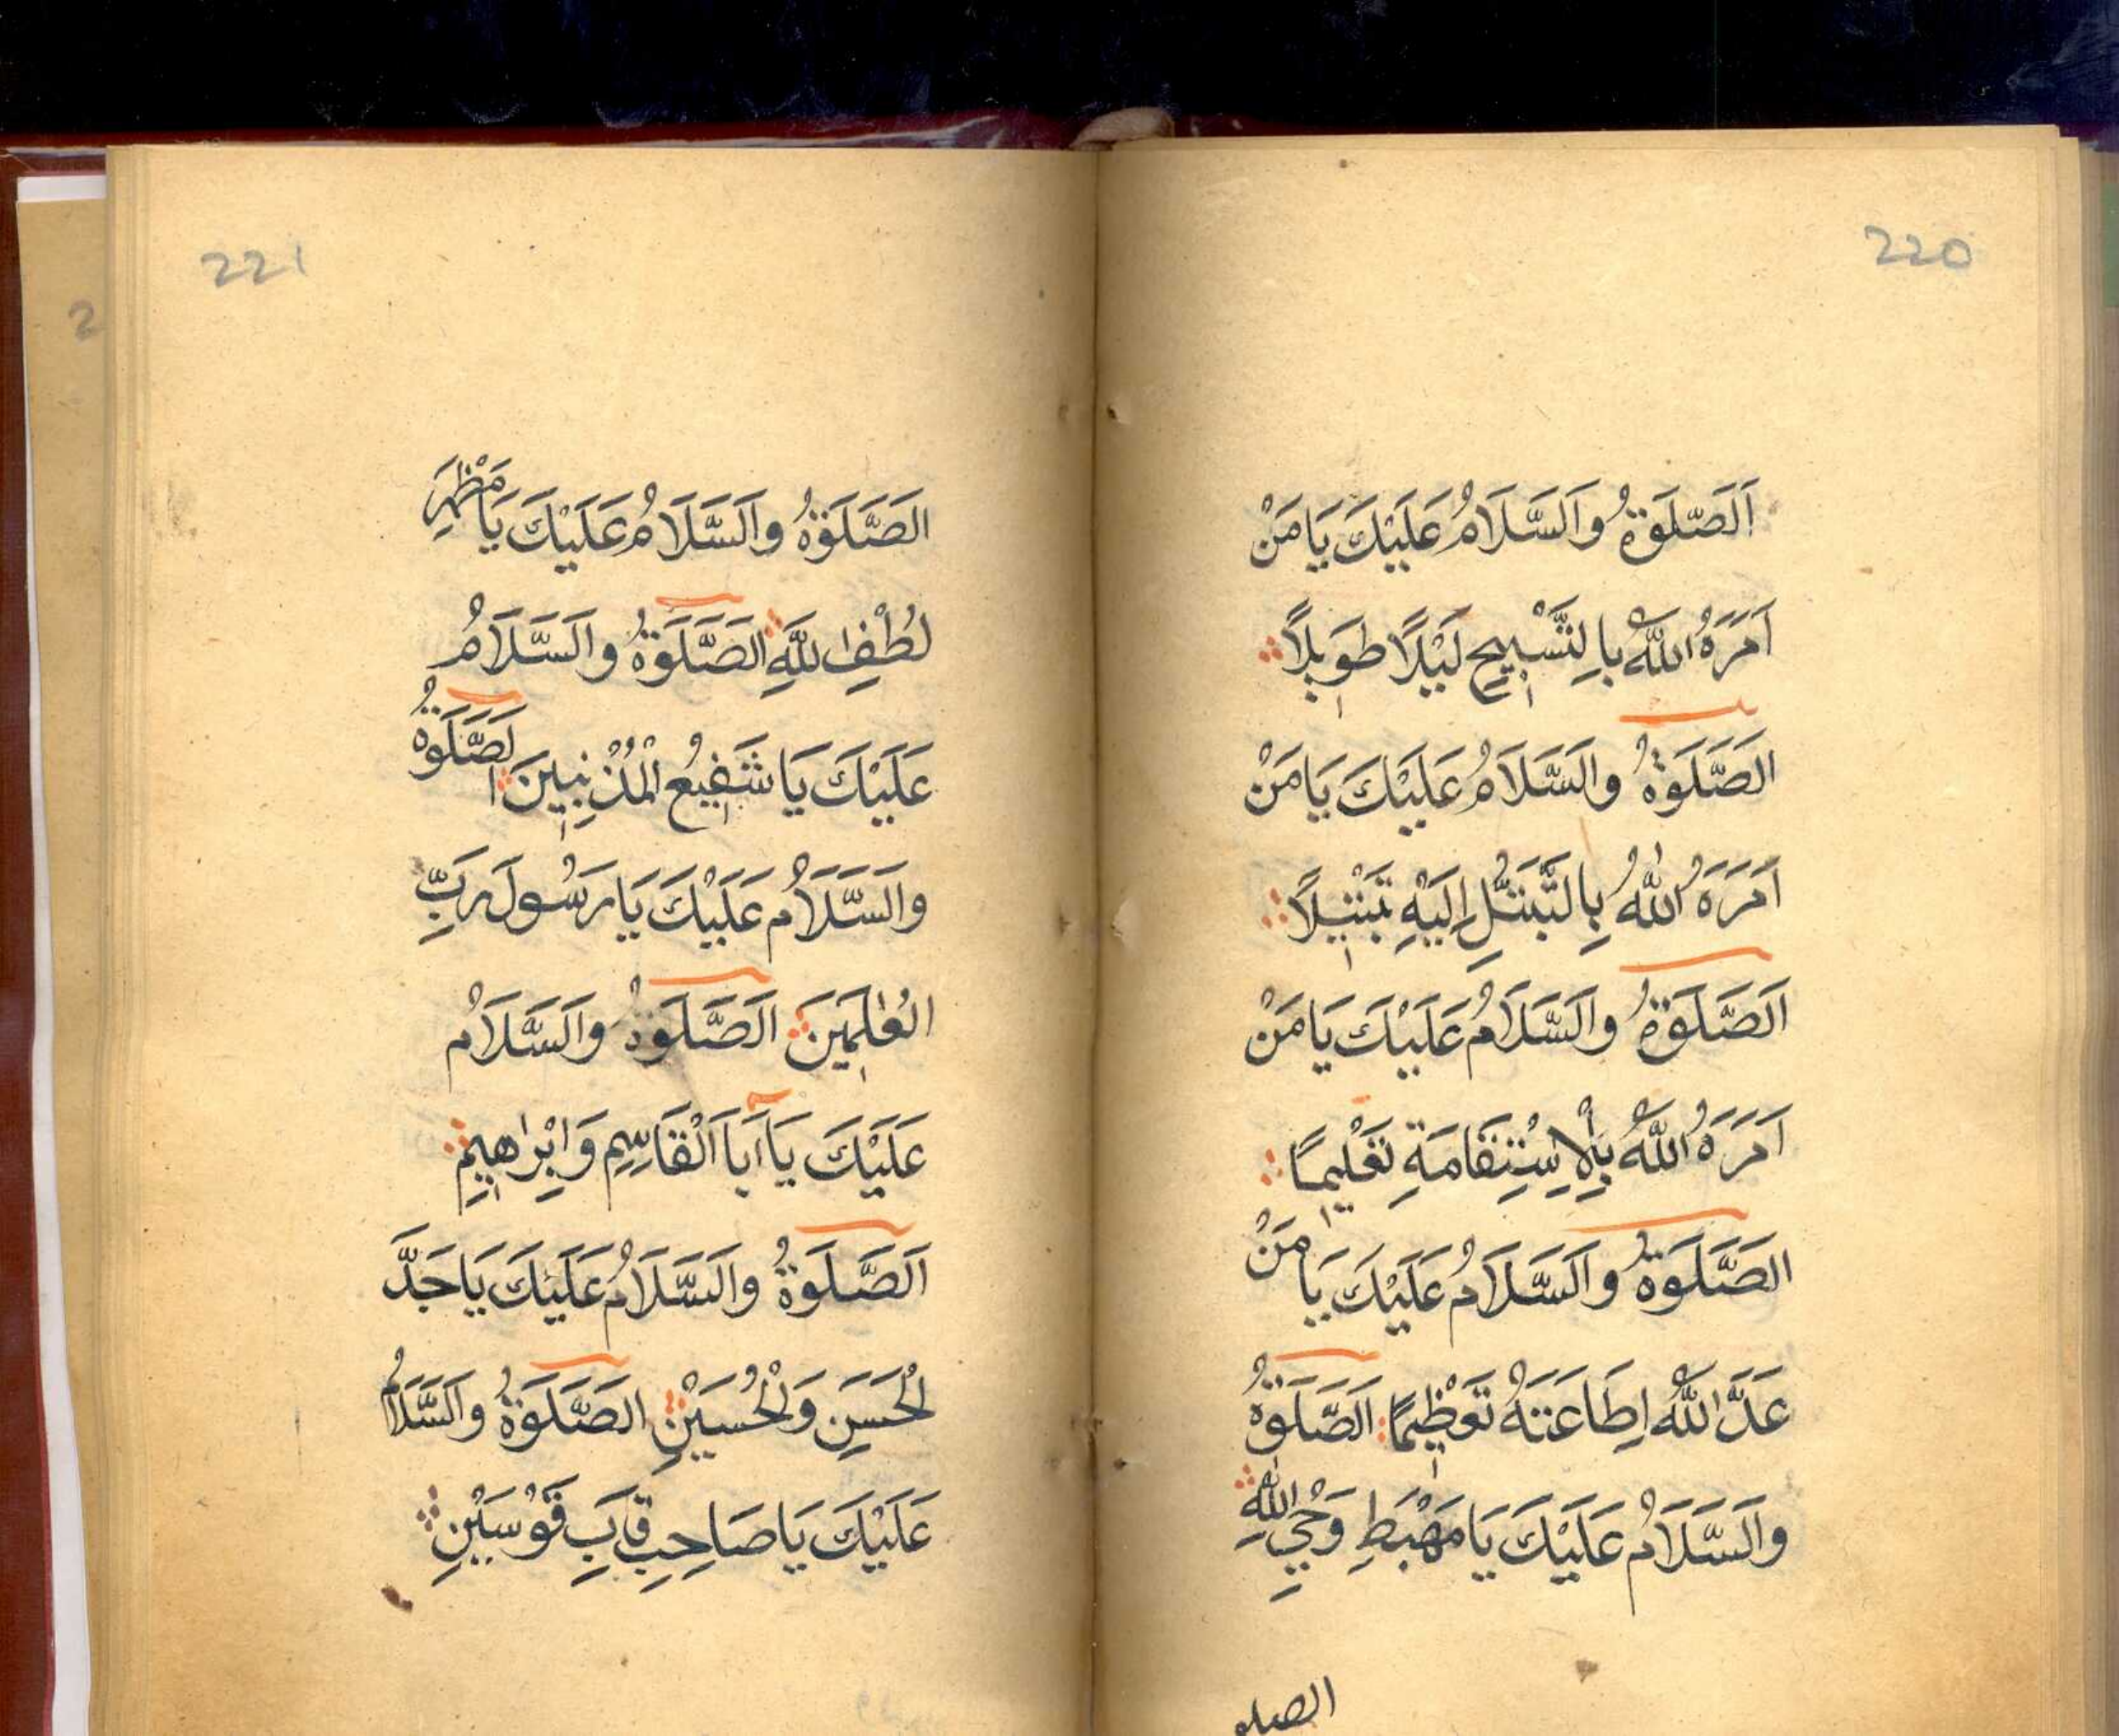 220
اَلصَّلَوٰةُ وَالسَّلَامُ عَلَيْكَ يَا مَنْ
اَمَرَهُ اللّٰهُ بِالتَّسْبِيحِ لَيْلًا طَوِيلًا
الصَّلَوٰةُ وَالسَّلَامُ عَلَيْكَ يَا مَنْ
اَمَرَهُ اللّٰهُ بِالتَّبَتُّلِ اِلَيْهِ تَبْتِيلًا
اَلصَّلَوٰةُ وَالسَّلَامُ عَلَيْكَ يَا مَنْ
اَمَرَهُ اللّٰهُ بِالْاِسْتِقَامَةِ تَعْلِيمًا
الصَّلَوٰةُ وَالسَّلَامُ عَلَيْكَ يَا مَنْ
عَدَّ اللّٰهُ اِطَاعَتَهُ تَعْظِيمًا اَلصَّلَوٰةُ
وَالسَّلَامُ عَلَيْكَ يَا مَهْبَطِ وَحْيِ اللّٰهِ
الصلو
221
الصَّلَوٰةُ وَالسَّلَامُ عَلَيْكَ يَا مَظْهَرِ
لُطْفِ اللّٰهِ الصَّلَوٰةُ وَالسَّلَامُ
عَلَيْكَ يَا شَفِيعُ الْمُذْنِبِينَ الصَّلَوٰةُ
وَالسَّلَامُ عَلَيْكَ يَا رَسُولَ رَبِّ
الْعٰلَمِينَ اَلصَّلَوٰةُ وَالسَّلَامُ
عَلَيْكَ يَا اَبَا الْقَاسِمِ وَاِبْرَاهِيمِ
اَلصَّلَوٰةُ وَالسَّلَامُ عَلَيْكَ يَا جَدَّ
الْحَسَنِ وَالْحُسَيْنِ الصَّلَوٰةُ وَالسَّلَامُ
عَلَيْكَ يَا صَاحِبِ قَابَ قَوْسَيْنِ
2